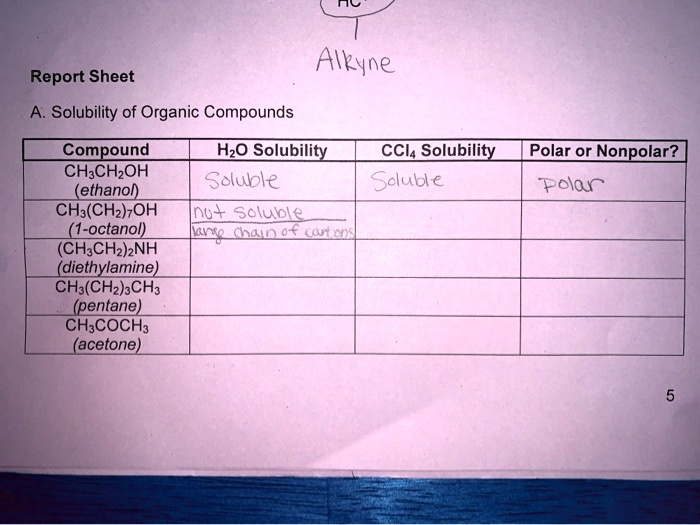 HC
Alkyne
Report Sheet
A. Solubility of Organic Compounds
Compound H₂O Solubility CCl₄ Solubility Polar or Nonpolar?
CH₃CH₂OH
(ethanol) Soluble Soluble Polar
CH₃(CH₂)₇OH not soluble
(1-octanol) large chain of carbons
(CH₃CH₂)₂NH
(diethylamine)
CH₃(CH₂)₃CH₃
(pentane)
CH₃COCH₃
(acetone)
5